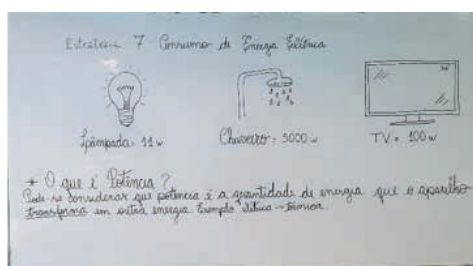 Estratégia 7 Consumo de Energia Elétrica
Lâmpada: 11w
Chuveiro: 5000w
TV = 100w
* O que é Potência?
Pode-se considerar que potência é a quantidade de energia que o aparelho
transforma em outra energia. Exemplo elétrica → térmica.